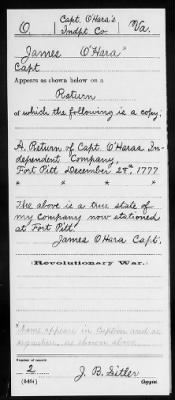 O. Capt. O'Hara's Indpt. Co. Va.
James O'Hara*
Capt
Appears as shown below on a
Return
of which the following is a copy:
A Return of Capt. O'Haras In-
dependent Company,
Fort Pitt December 28th, 1777
* * * *
The above is a true state of
my Company now stationed
at Fort Pitt.
James O'Hara Capt.
(Revolutionary War.)
*Name appears in Caption and as
signature, as shown above.
Number of record:
2
J. B. Sitler
(545d) Copyist.